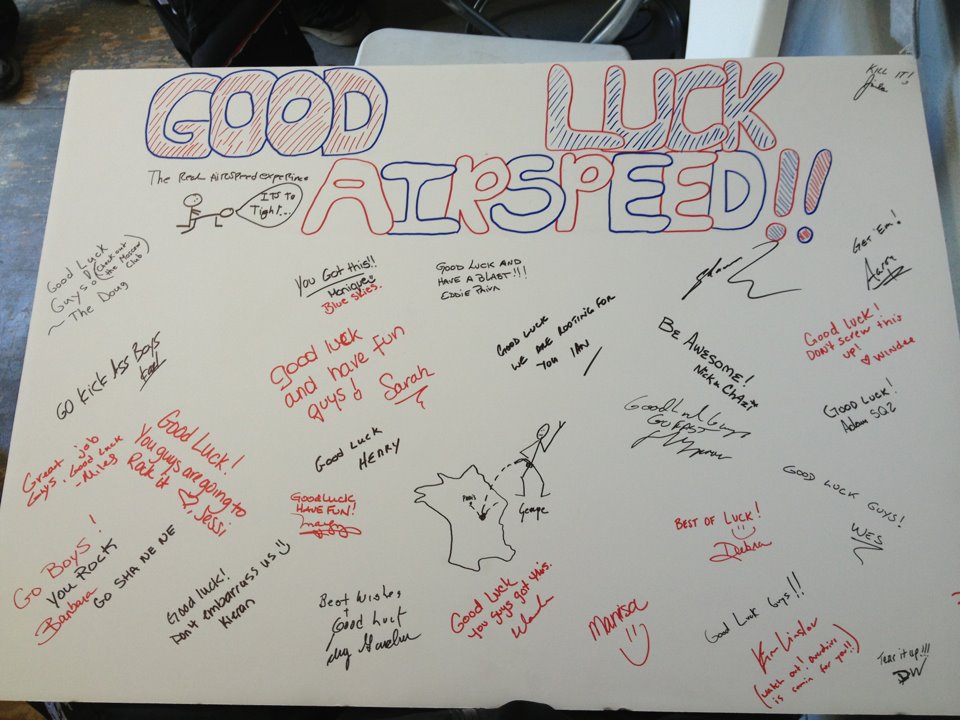 GOOD LUCK
AIRSPEED!!
KILL IT!
The Real Airspeed experience
ITS TO
Tight...
Good Luck
Guys &
(Check out
the Moscow
Club)
~ The Doug
You Got this!!
Monique
Blue skies.
GOOD LUCK AND
HAVE A BLAST!!!
EDDIE PAIVA
GET 'EM!
Aaron
GO KICK ASS BOYS
Good luck
and have fun
guys!
Sarah
GOOD LUCK
WE ARE ROOTING FOR
YOU IAN
BE AWESOME!
Nick & Chazi
Good Luck!
Don't screw this
up!
♡ Windee
Good Luck!
Adam SQZ
Great job
Guys, Good Luck
-Miles
Good Luck!
You guys are going to
Rock it
♡, Jessi
Good Luck
HENRY
Good Luck Guys
GO FAST
Paris
George
GOOD LUCK
HAVE FUN!
BEST OF LUCK!
Debra
GOOD LUCK GUYS!
WES
GO BOYS!
YOU ROCK
Barbara
GO SHA NE NE
Good luck!
Don't embarrass us
Kieran
Best Wishes
+
Good Luck
Good Luck
you guys got this.
Marisa
Good Luck Guys!!!
Kim Linster
(watch out! Overdrive
is comin for you!!)
Tear it up!!!
DW